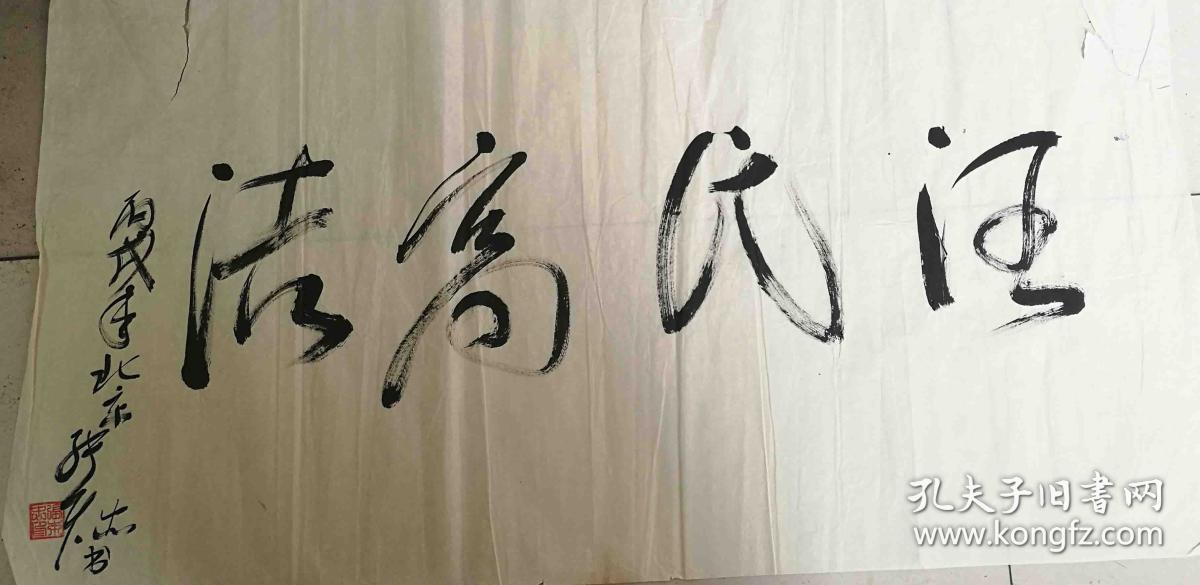 汪氏高洁
丙戌年北京
书
孔夫子旧书网
www.kongfz.com